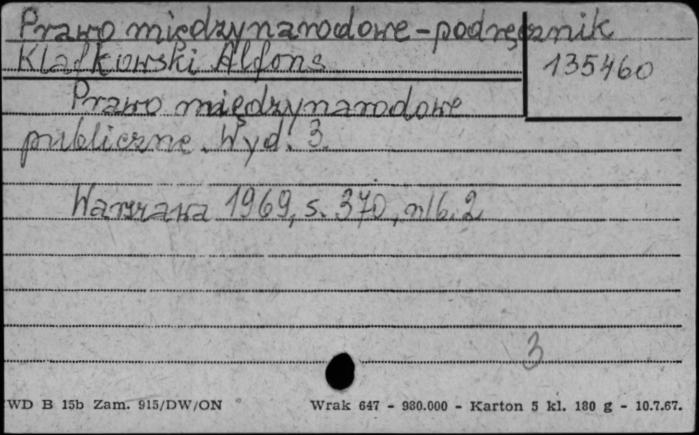 Prawo międzynarodowe - podręcznik
Klafkowski Alfons
135460
Prawo międzynarodowe
publiczne. Wyd. 3.
Warszawa 1969, s. 370, nlb. 2
3
WD B 15b Zam. 915/DW/ON Wrak 647 - 980.000 - Karton 5 kl. 180 g - 10.7.67.